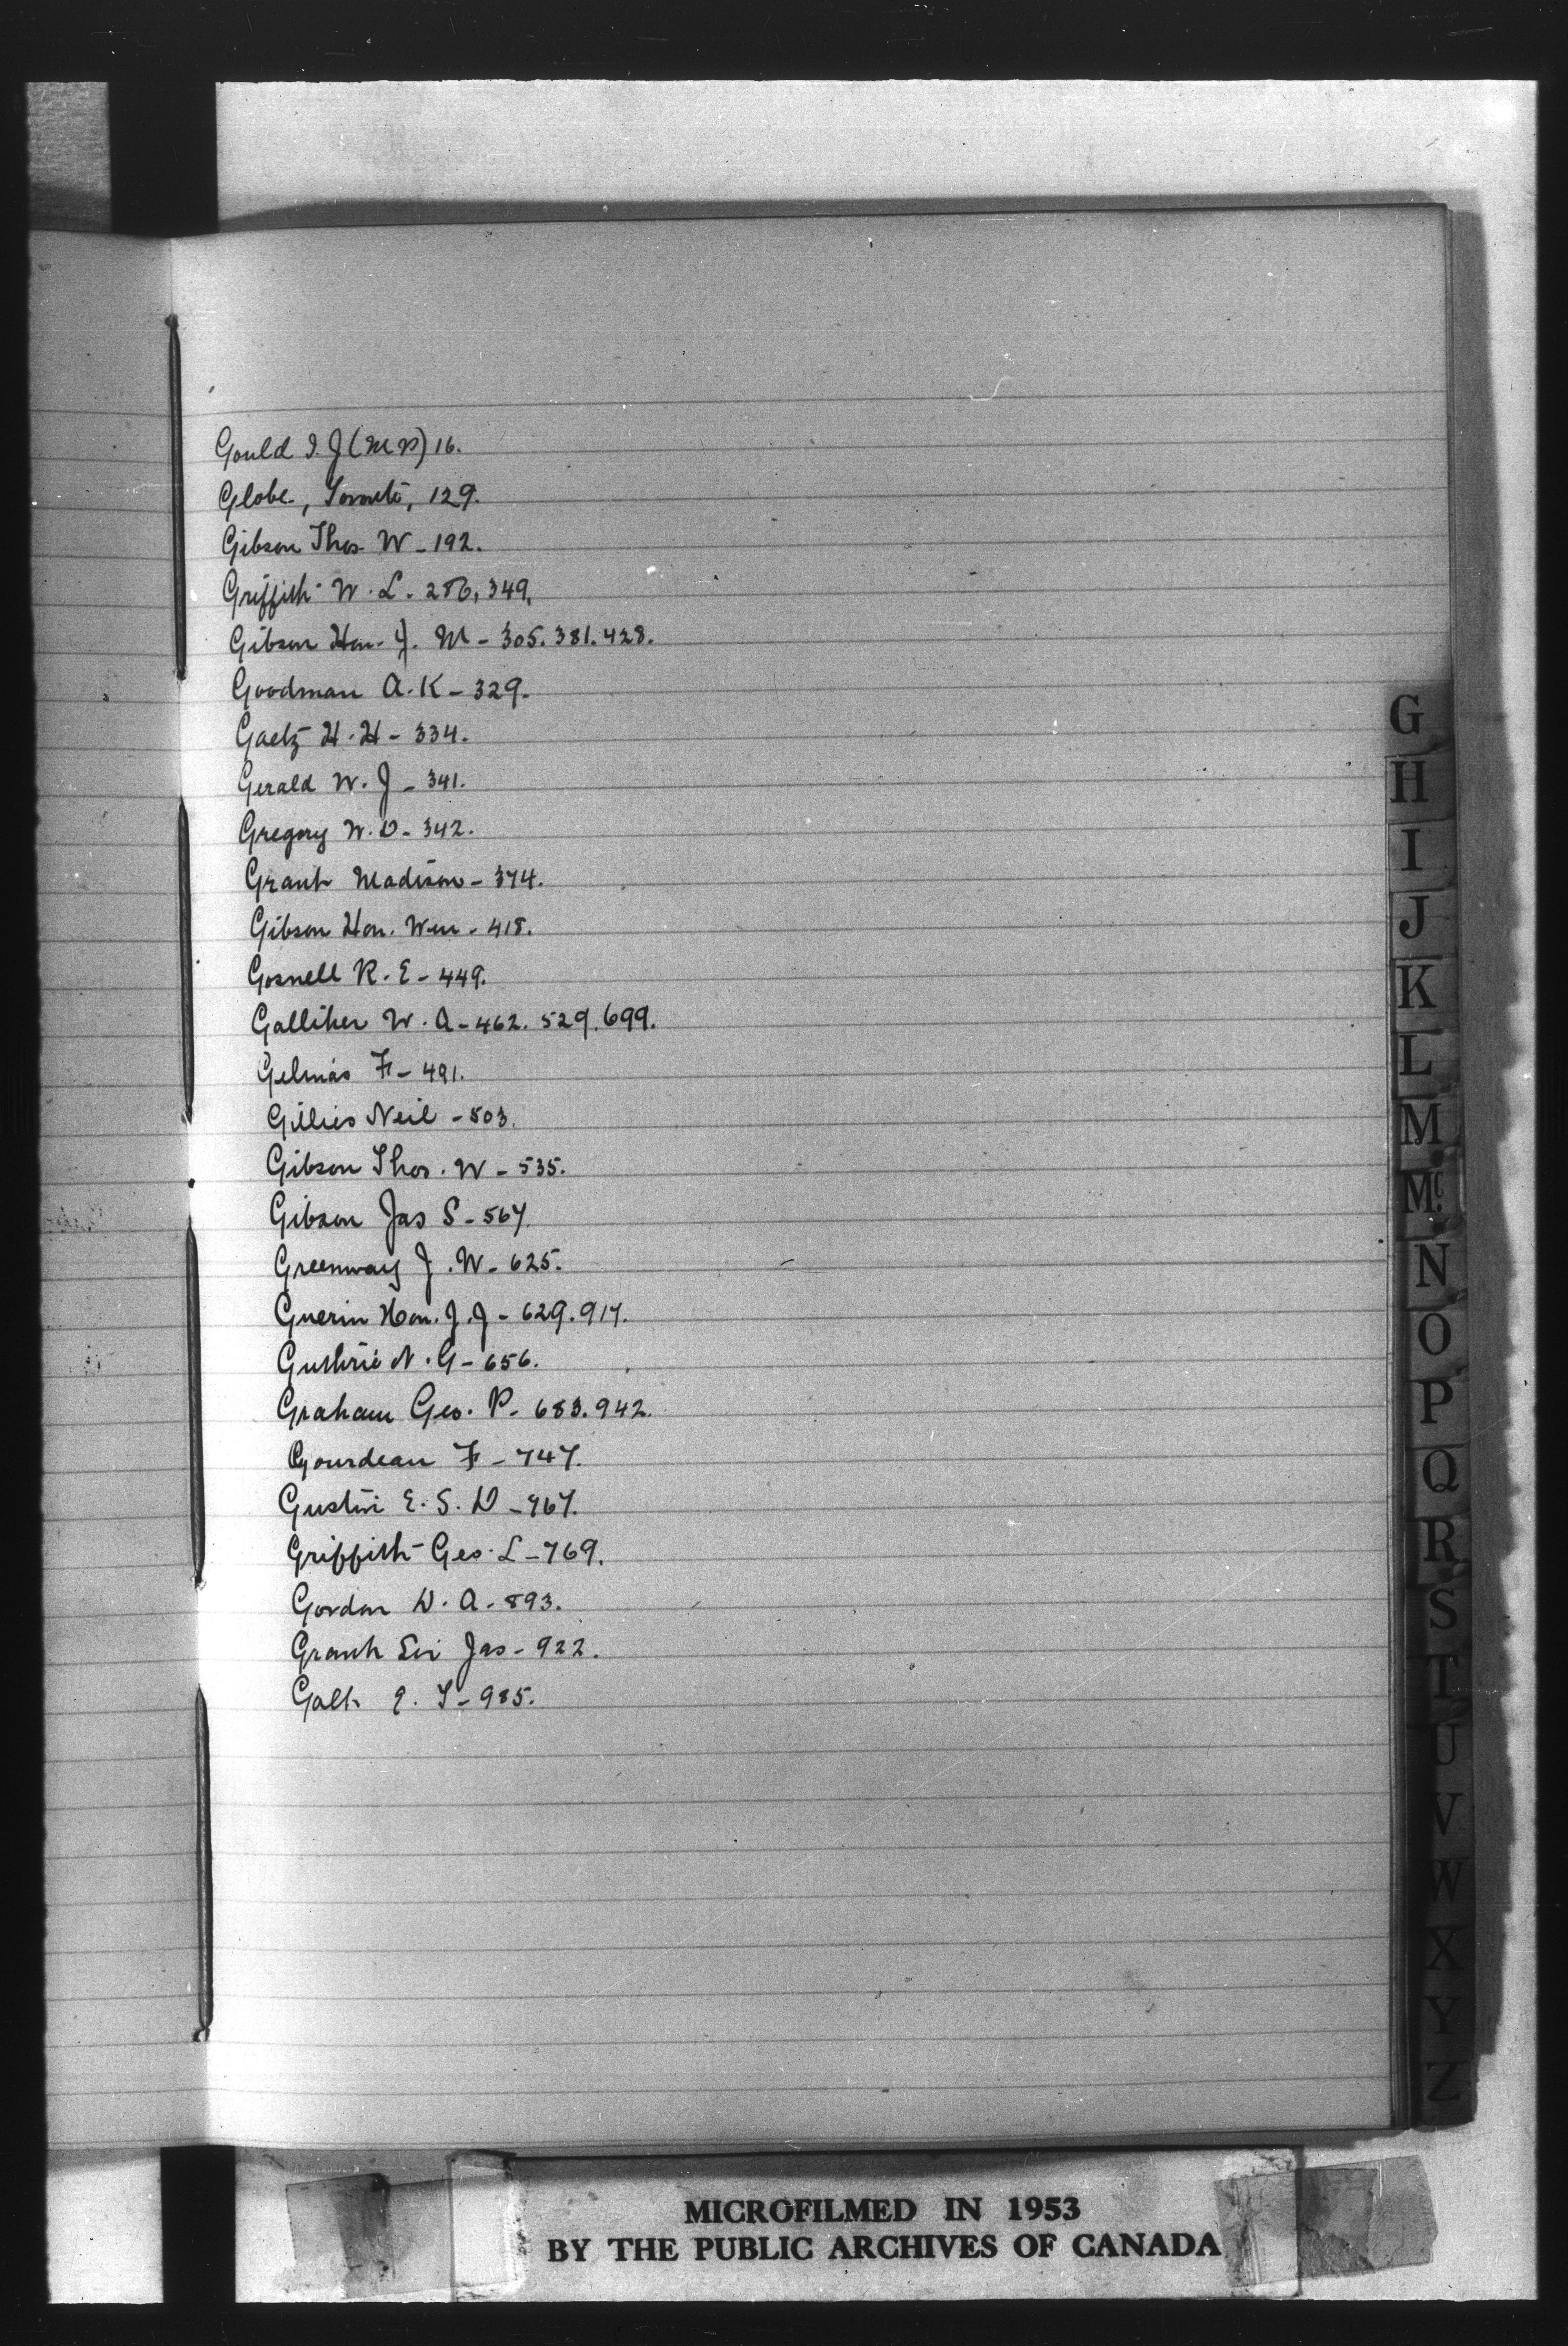 Gould I. J (M P) 16.
Globe, Toronto, 129.
Gibson Thos W - 192.
Griffith W. L. 286, 349,
Gibson Hon. J. M - 305. 381. 428.
Goodman A. K - 329.
Gaetz H. H - 334.
Gerald W. J - 341.
Gregory W. D - 342.
Grant Madison - 374.
Gibson Hon. Wm - 418.
Gosnell R. E - 449.
Galliher W. A - 462. 529. 699.
Gelinas F - 491.
Gillies Neil - 503.
Gibson Thos. W - 535.
Gibson Jas S - 567.
Greenway J. W - 625.
Guerin Hon. J. J - 629. 917.
Guthrie N. G - 656.
Graham Geo. P - 683. 942.
Gourdeau F - 747.
Gustin E. S. D - 767.
Griffith Geo. L - 769.
Gordon D. A - 893.
Grant Sir Jas - 922.
Galt E. T - 985.
G
H
I
J
K
L
M
Mc.
N
O
P
Q
R
S
T
U
V
W
X
Y
Z
MICROFILMED IN 1953
BY THE PUBLIC ARCHIVES OF CANADA